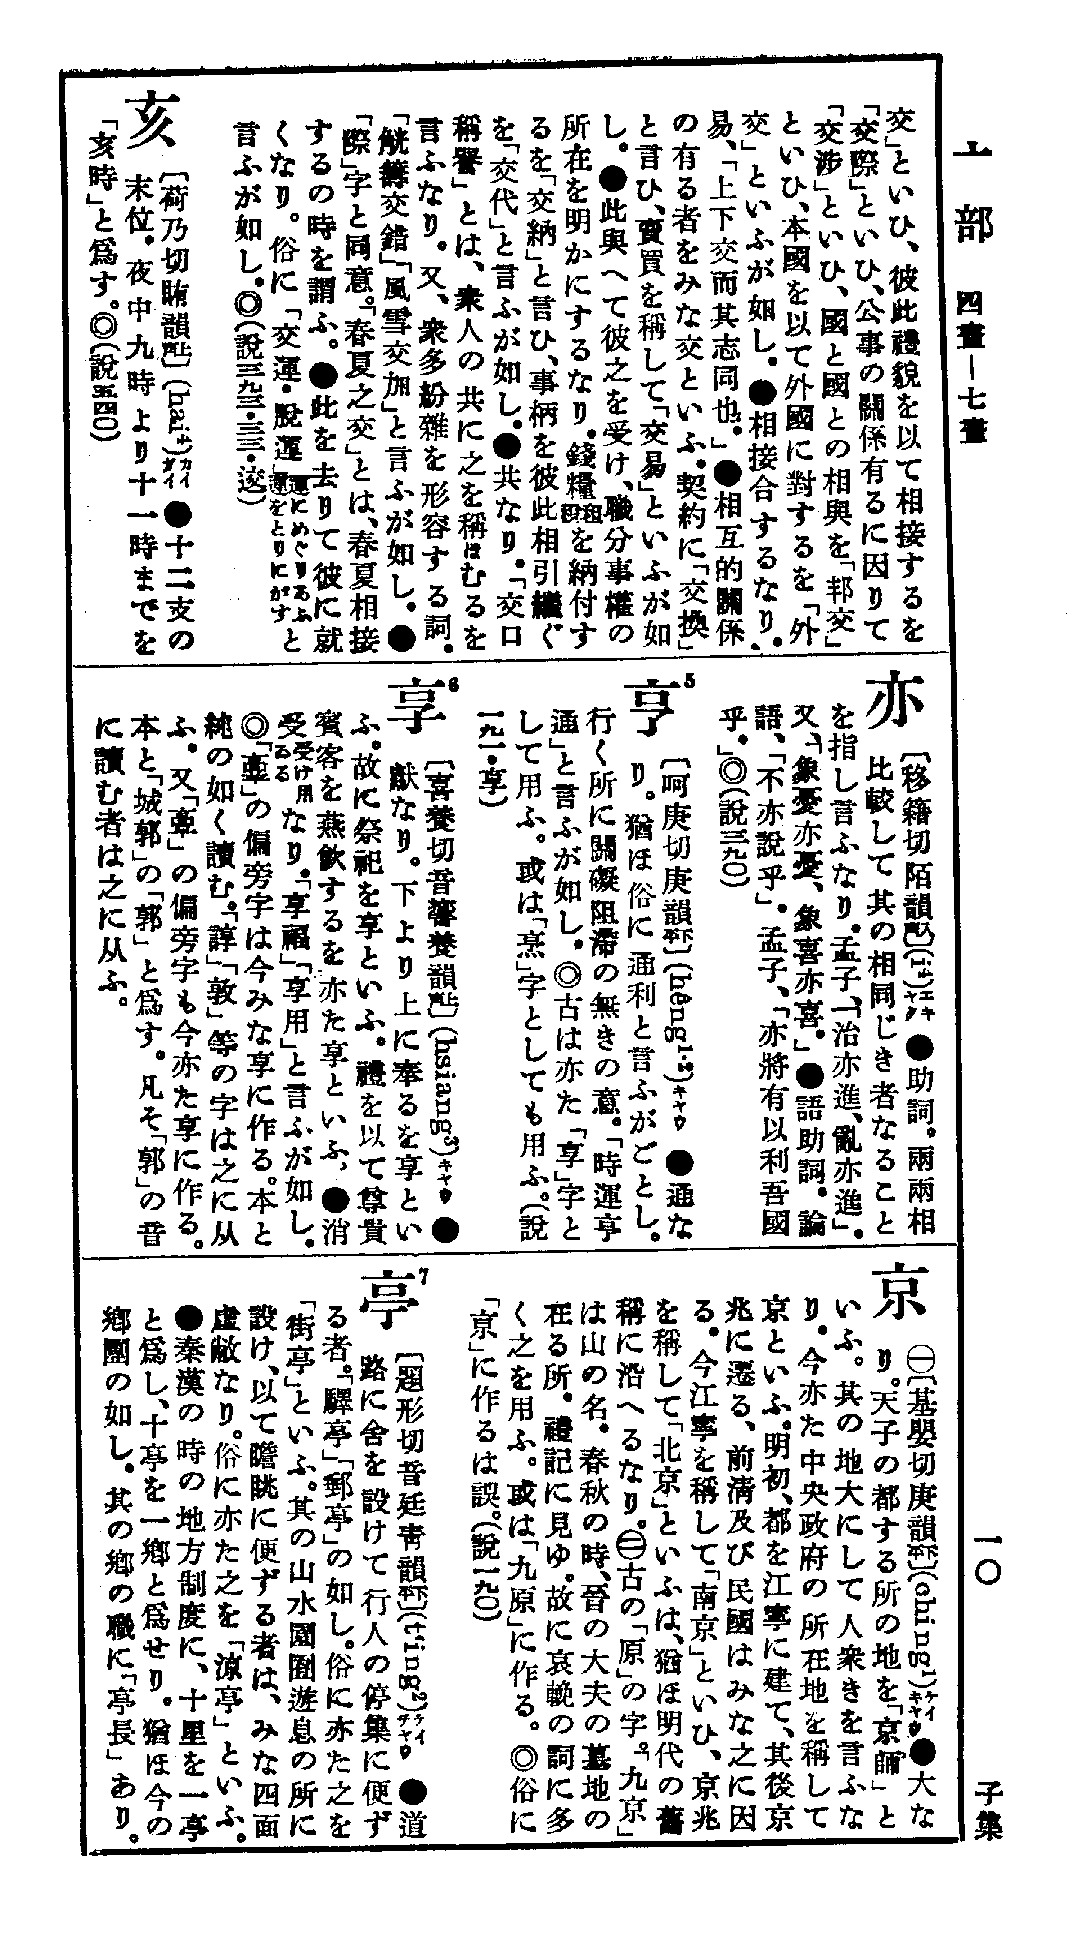 亠部 四畫－七畫
一〇
子集
交」といひ、彼此禮貌を以て相接するを
「交際」といひ、公事の關係有るに因りて
「交涉」といひ、國と國との相與を「邦交」
といひ、本國を以て外國に對するを「外
交」といふが如し。●相接合するなり。
易、「上下交而其志同也。」●相互的關係
の有る者をみな交といふ。契約に「交換」
と言ひ、賣買を稱して「交易」といふが如
し。●此與へて彼之を受け、職分事權の
所在を明かにするなり。錢糧租稅を納付す
るを「交納」と言ひ、事柄を彼此相引繼ぐ
を「交代」と言ふが如し。●共なり。「交口
稱譽」とは、衆人の共に之を稱ほむるを
言ふなり。又、衆多紛雜を形容する詞。
「觥籌交錯」「風雪交加」と言ふが如し。●
「際」字と同意。「春夏之交」とは、春夏相接
するの時を謂ふ。●此を去りて彼に就
くなり。俗に「交運・脫運」運にめぐりあふ運をとりにがすと
言ふが如し。◎(說三九三・三三・㣣)
亥 〔荷乃切賄韻上聲〕(hai⁴)カイ ガイ ●十二支の
末位。夜中九時より十一時までを
「亥時」と爲す。◎(說五四〇)
亦 〔移籍切陌韻入聲〕(i⁴)エキ ヤク ●助詞。兩兩相
比較して其の相同じき者なること
を指し言ふなり。孟子、「治亦進、亂亦進」。
又、「象憂亦憂、象喜亦喜。」●語助詞。論
語、「不亦說乎」。孟子、「亦將有以利吾國
乎。」◎(說三九〇)
5
亨 〔呵庚切庚韻下平〕(hêng¹·²)キヤウ ●通な
り。猶ほ俗に通利と言ふがごとし。
行く所に關礙阻滯の無きの意。「時運亨
通」と言ふが如し。◎古は亦た「享」字と
して用ふ。或は「烹」字としても用ふ。(說
一九一・享)
6
享 〔喜養切音響養韻上聲〕(hsiang³)キヤウ ●
獻なり。下より上に奉るを享とい
ふ。故に祭祀を享といふ。禮を以て尊貴
賓客を燕飮するを亦た享といふ。●消
受受け用ゐるなり。「享福」「享用」と言ふが如し。
◎「𦎫」の偏旁字は今みな享に作る。本と
純の如く讀む。「諄」「敦」等の字は之に从
ふ。又「𩫏」の偏旁字も今亦た享に作る。
本と「城郭」の「郭」と爲す。凡そ「郭」の音
に讀む者は之に从ふ。
京 ㊀〔基嬰切庚韻下平〕(ching¹)ケイ キヤウ ●大な
り。天子の都する所の地を「京師」と
いふ。其の地大にして人衆きを言ふな
り。今亦た中央政府の所在地を稱して
京といふ。明初、都を江寧に建て、其後京
兆に遷る、前淸及び民國はみな之に因
る。今江寧を稱して「南京」といひ、京兆
を稱して「北京」といふは、猶ほ明代の舊
稱に沿へるなり。㊁古の「原」の字。「九京」
は山の名。春秋の時、晉の大夫の墓地の
在る所。禮記に見ゆ。故に哀輓の詞に多
く之を用ふ。或は「九原」に作る。◎俗に
「亰」に作るは誤。(說一九〇)
7
亭 〔題形切音廷靑韻下平〕(t'ing²)テイ チヤウ ●道
路に舍を設けて行人の停集に便ず
る者。「驛亭」「郵亭」の如し。俗に亦た之を
「街亭」といふ。其の山水園囿遊息の所に
設け、以て瞻眺に便ずる者は、みな四面
虛敞なり。俗に亦た之を「涼亭」といふ。
●秦漢の時の地方制度に、十里を一亭
と爲し、十亭を一鄕と爲せり。猶ほ今の
鄕團の如し。其の鄕の職に「亭長」あり。